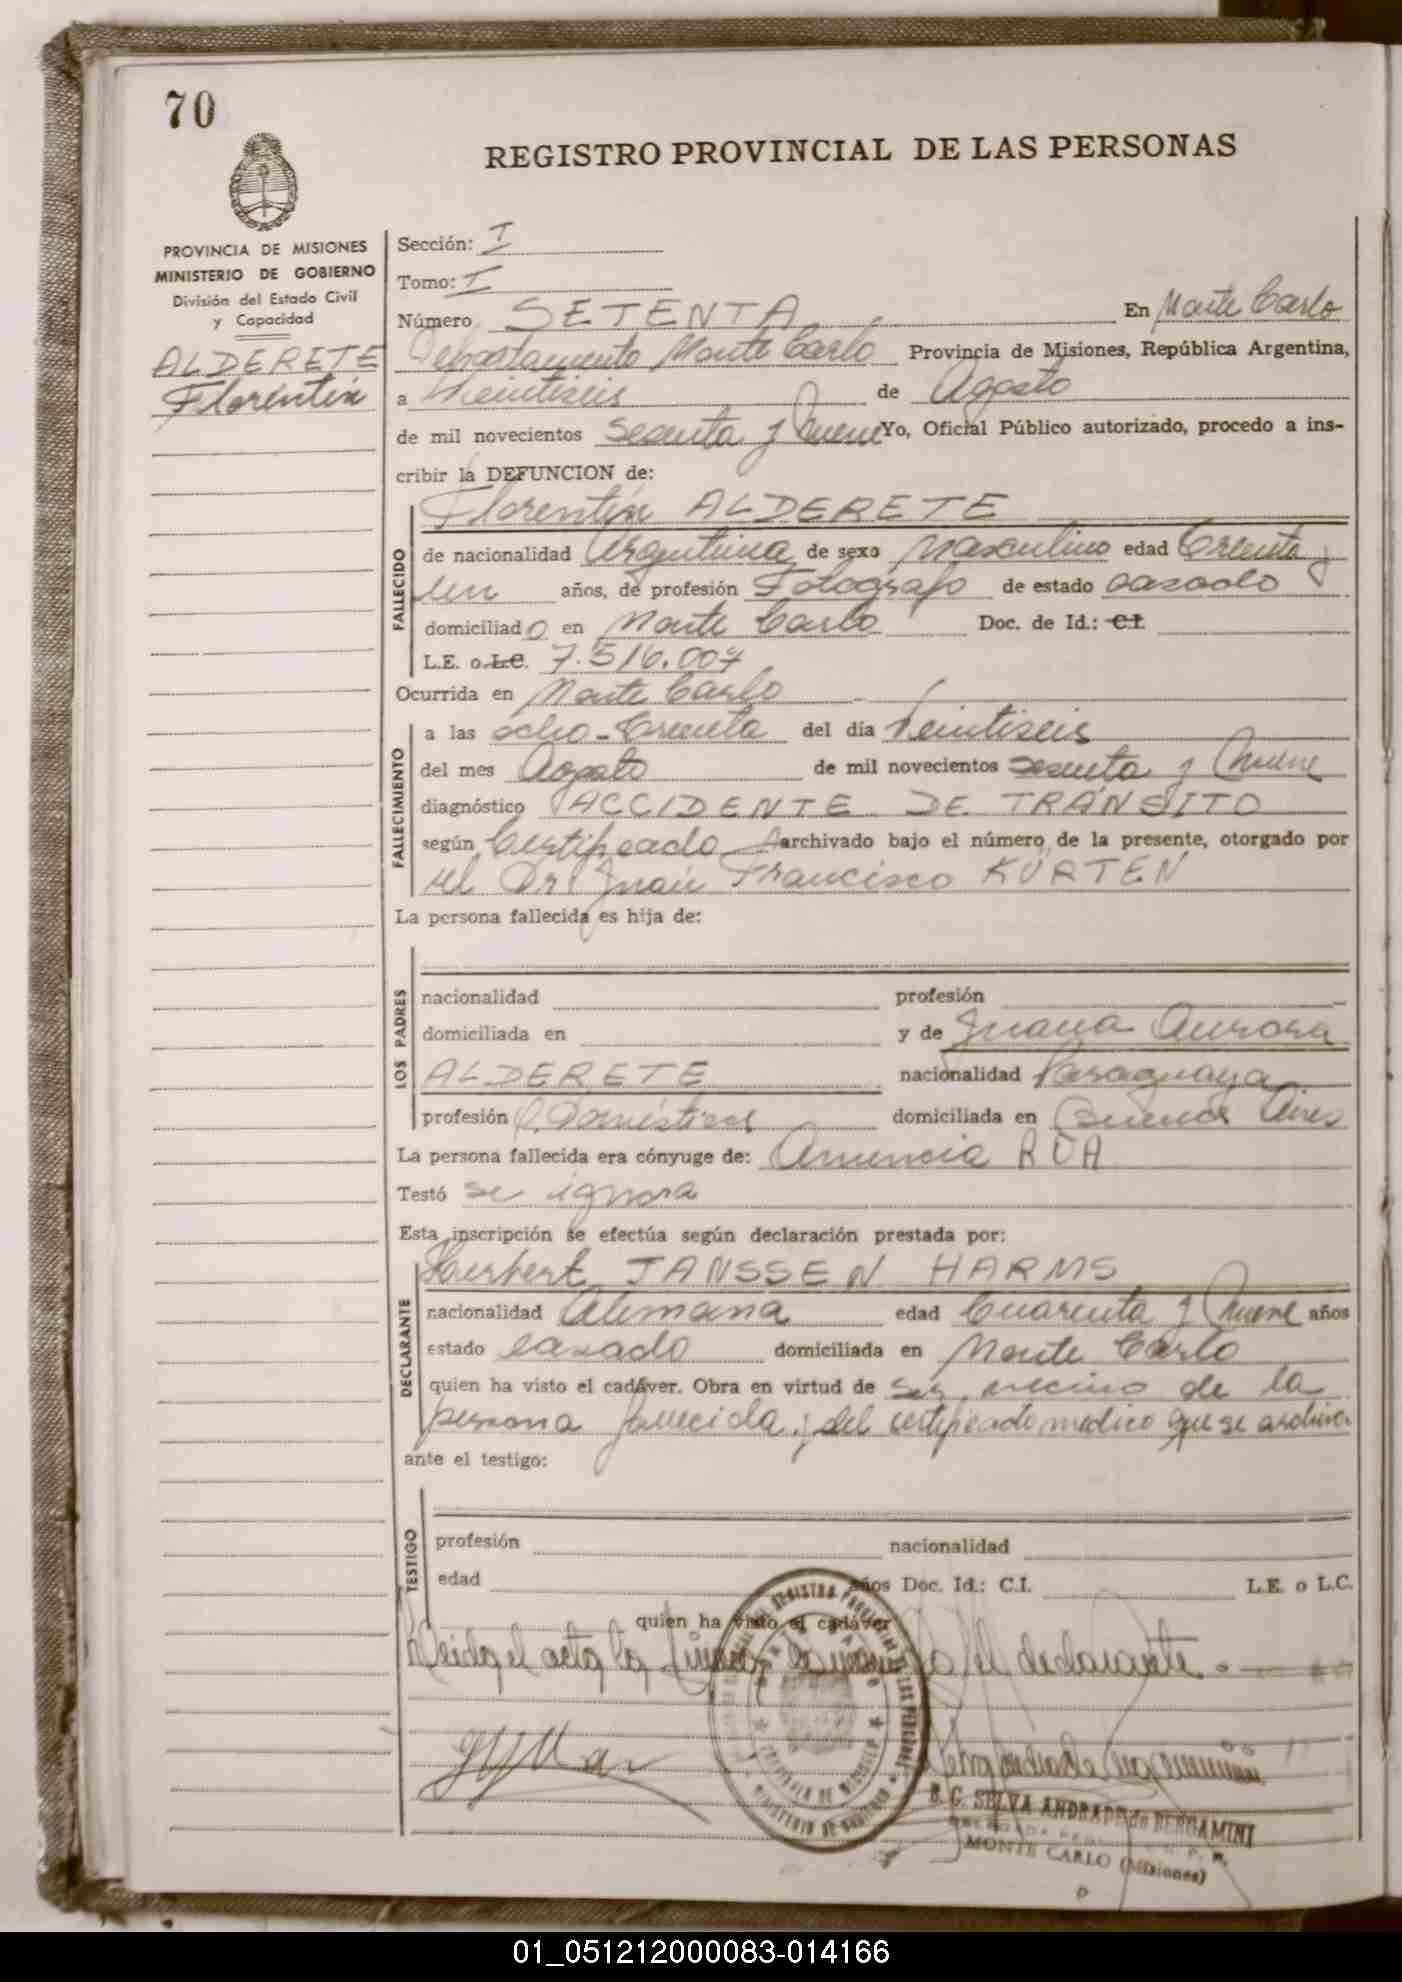 70
REGISTRO PROVINCIAL DE LAS PERSONAS
PROVINCIA DE MISIONES
MINISTERIO DE GOBIERNO
División del Estado Civil
y Capacidad
ALDERETE
Florentín
Sección: I
Tomo: I
Número SETENTA En Monte Carlo
Departamento Monte Carlo Provincia de Misiones, República Argentina,
a Veintiseis de Agosto
de mil novecientos sesenta y Nueve Yo, Oficial Público autorizado, procedo a ins-
cribir la DEFUNCION de:
Florentín ALDERETE
FALLECIDO
de nacionalidad Argentina de sexo Masculino edad Treinta y
un años, de profesión Fotógrafo de estado casado
domiciliado en Monte Carlo Doc. de Id.: C.I.
L.E. o L.C. 7.516.007
Ocurrida en Monte Carlo
FALLECIMIENTO
a las ocho-treinta del día Veintiseis
del mes Agosto de mil novecientos sesenta y Nueve
diagnóstico ACCIDENTE DE TRANSITO
según Certificado archivado bajo el número de la presente, otorgado por
el Dr. Juan Francisco KÜRTEN
La persona fallecida es hija de:
LOS PADRES
nacionalidad profesión
domiciliada en y de Juana Aurora
ALDERETE nacionalidad Paraguaya
profesión Q. Domésticos domiciliada en Buenos Aires
La persona fallecida era cónyuge de: Amencia ROA
Testó se ignora
Esta inscripción se efectúa según declaración prestada por:
DECLARANTE
Herbert JANSSEN HARMS
nacionalidad Alemana edad Cuarenta y Nueve años
estado casado domiciliada en Monte Carlo
quien ha visto el cadáver. Obra en virtud de ser vecino de la
persona fallecida y del certificado médico que se archiva
ante el testigo:
TESTIGO
profesión nacionalidad
edad años Doc. Id.: C.I. L.E. o L.C.
quien ha visto el cadáver
Leida el acta la firma el declarante.
B. G. SELVA ANDRADE de BERGAMINI
MONTE CARLO (Misiones)
01_051212000083-014166